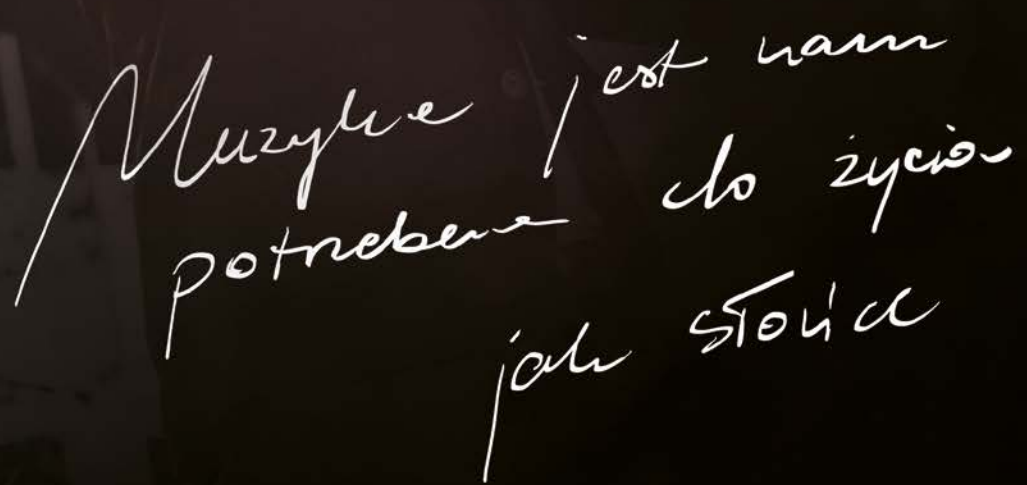 Muzyka jest nam
potrzebna do życia
jak słońce